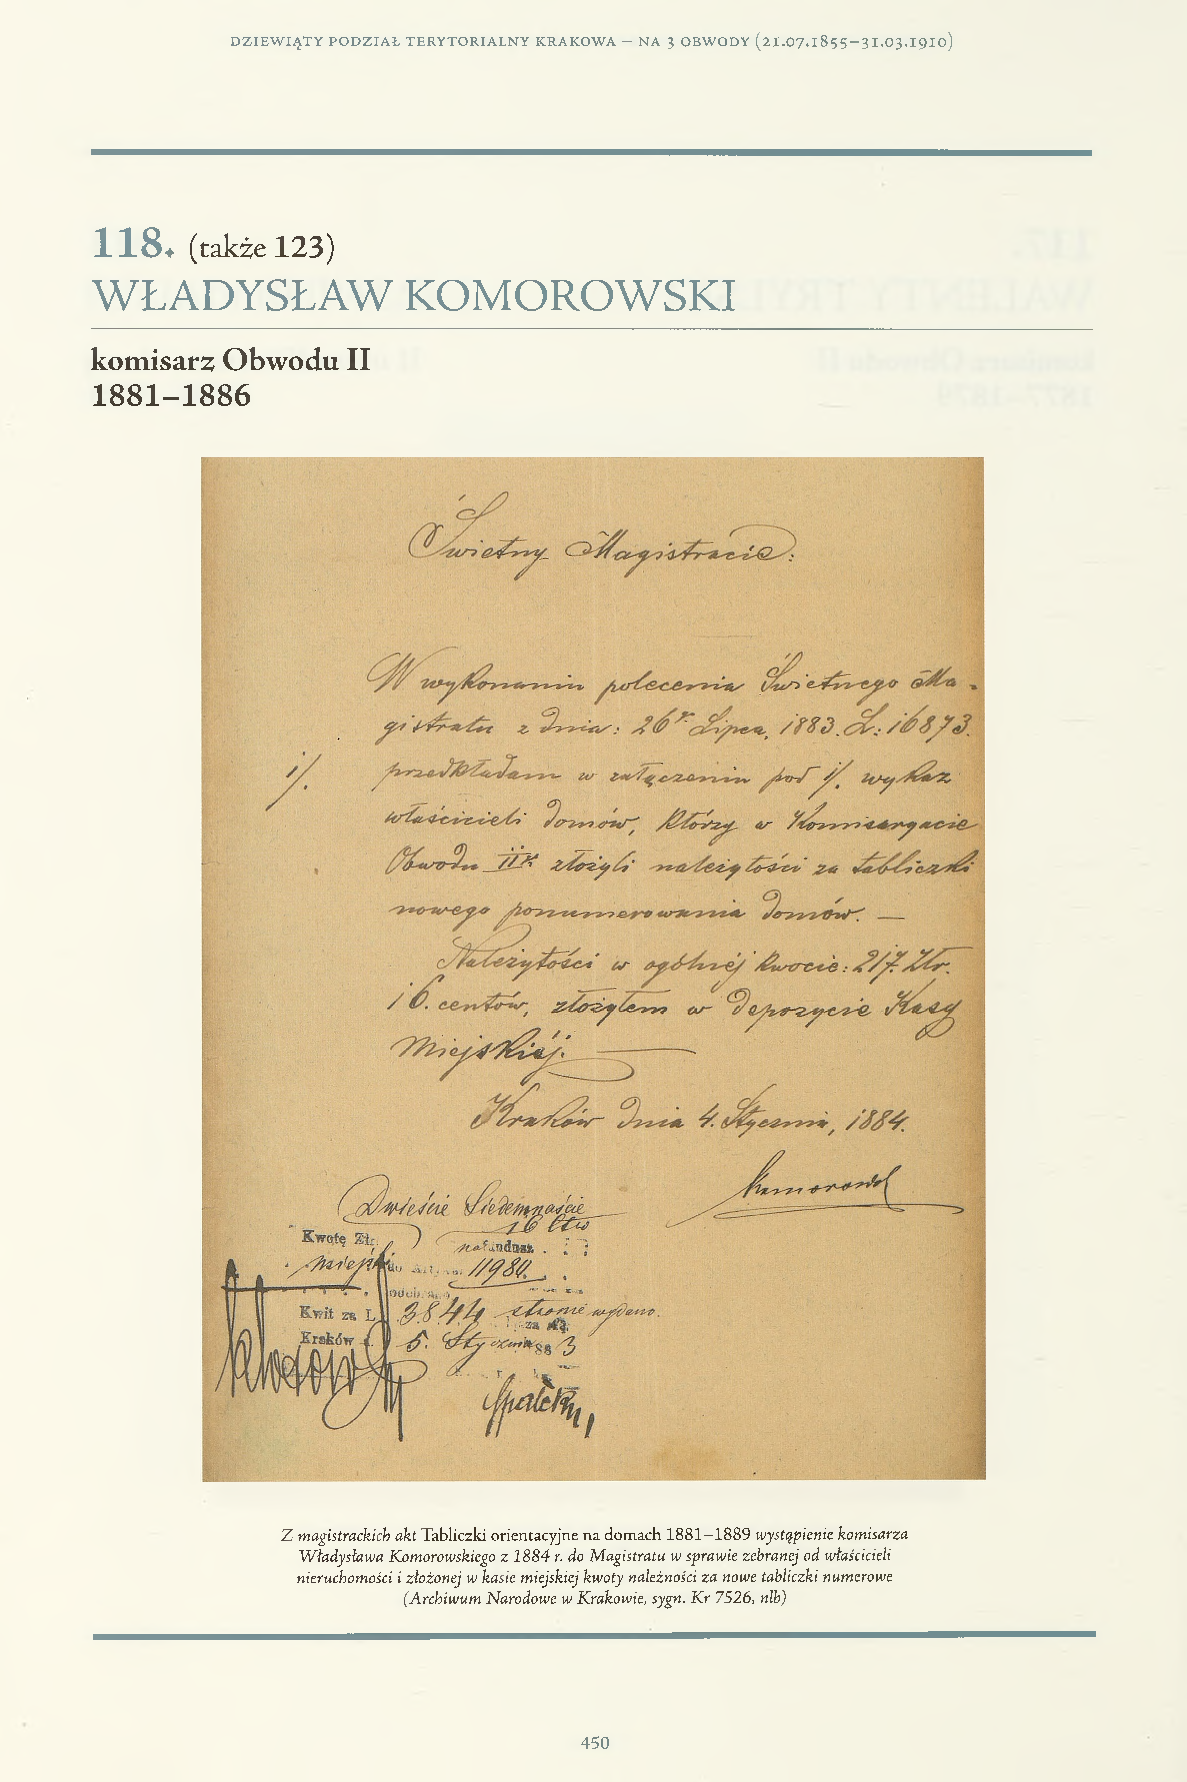 DZIEWIĄTY PODZIAŁ TERYTORIALNY KRAKOWA – NA 3 OBWODY (21.07.1855–31.03.1910)
118. (także 123)
WŁADYSŁAW KOMOROWSKI
komisarz Obwodu II
1881–1886
Świetny Magistracie:
W wykonaniu polecenia Świetnego Ma-
gistratu z dnia: 26go Lipca, 1883. L: 16873.
1/. przedkładam w załączeniu pod 1/. wykaz
właścicieli domów, którzy w Komisaryacie
Obwodu IIm. złożyli należytości za tabliczki
nowego ponumerowania domów. —
Należytości w ogólnéj kwocie: 217. Złr.
16. centów, złożyłem w depozycie Kasy
Miejskiéj.
Kraków dnia 4. Stycznia, 1884.
Komorowski
Dwieście Siedemnaście
16 ctw
Kwotę Zł.
na fundusz
miejski do 11980.
odebrano
Kwit za L 3844 stronie wydano.
za
Kraków d. 5. Stycznia 88 3
Z magistrackich akt Tabliczki orientacyjne na domach 1881–1889 wystąpienie komisarza
Władysława Komorowskiego z 1884 r. do Magistratu w sprawie zebranej od właścicieli
nieruchomości i złożonej w kasie miejskiej kwoty należności za nowe tabliczki numerowe
(Archiwum Narodowe w Krakowie, sygn. Kr 7526, nlb)
450